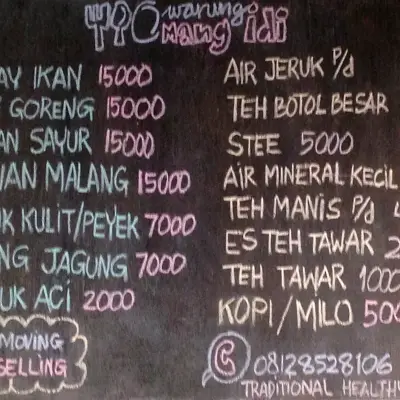 warung
mang idi
AY IKAN 15000
GORENG 15000
AN SAYUR 15000
AN MALANG 15000
K KULIT/PEYEK 7000
NG JAGUNG 7000
UK ACI 2000
MOVING
SELLING
AIR JERUK P/d
TEH BOTOL BESAR
STEE 5000
AIR MINERAL KECIL
TEH MANIS P/d
ES TEH TAWAR 2
TEH TAWAR 1000
KOPI/MILO 500
08128528106
TRADITIONAL HEALTHY